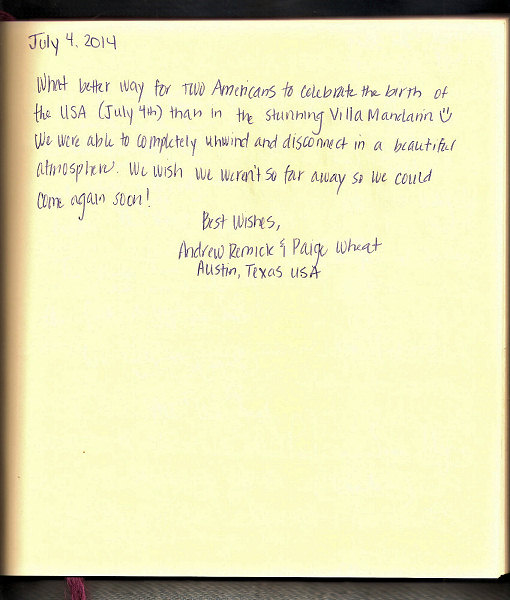 July 4, 2014
What better way for two Americans to celebrate the birth of
the USA (July 4th) than in the stunning Villa Mandarin
We were able to completely unwind and disconnect in a beautiful
atmosphere. We wish we weren't so far away so we could
come again soon!
Best Wishes,
Andrew Remick & Paige Wheat
Austin, Texas USA